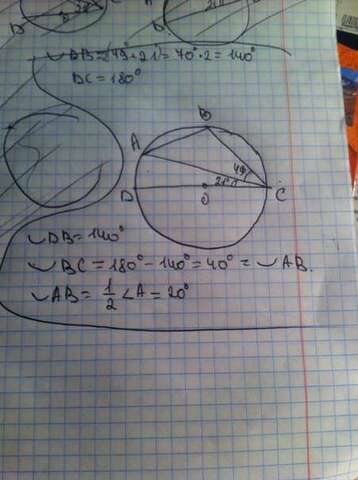 ◡DB = (49+21) = 70° · 2 = 140°
BC = 180°
B
A
49
21°
D
O
C
◡DB = 140°
◡BC = 180° - 140° = 40° = ◡AB.
◡AB = 1/2 ∠A = 20°